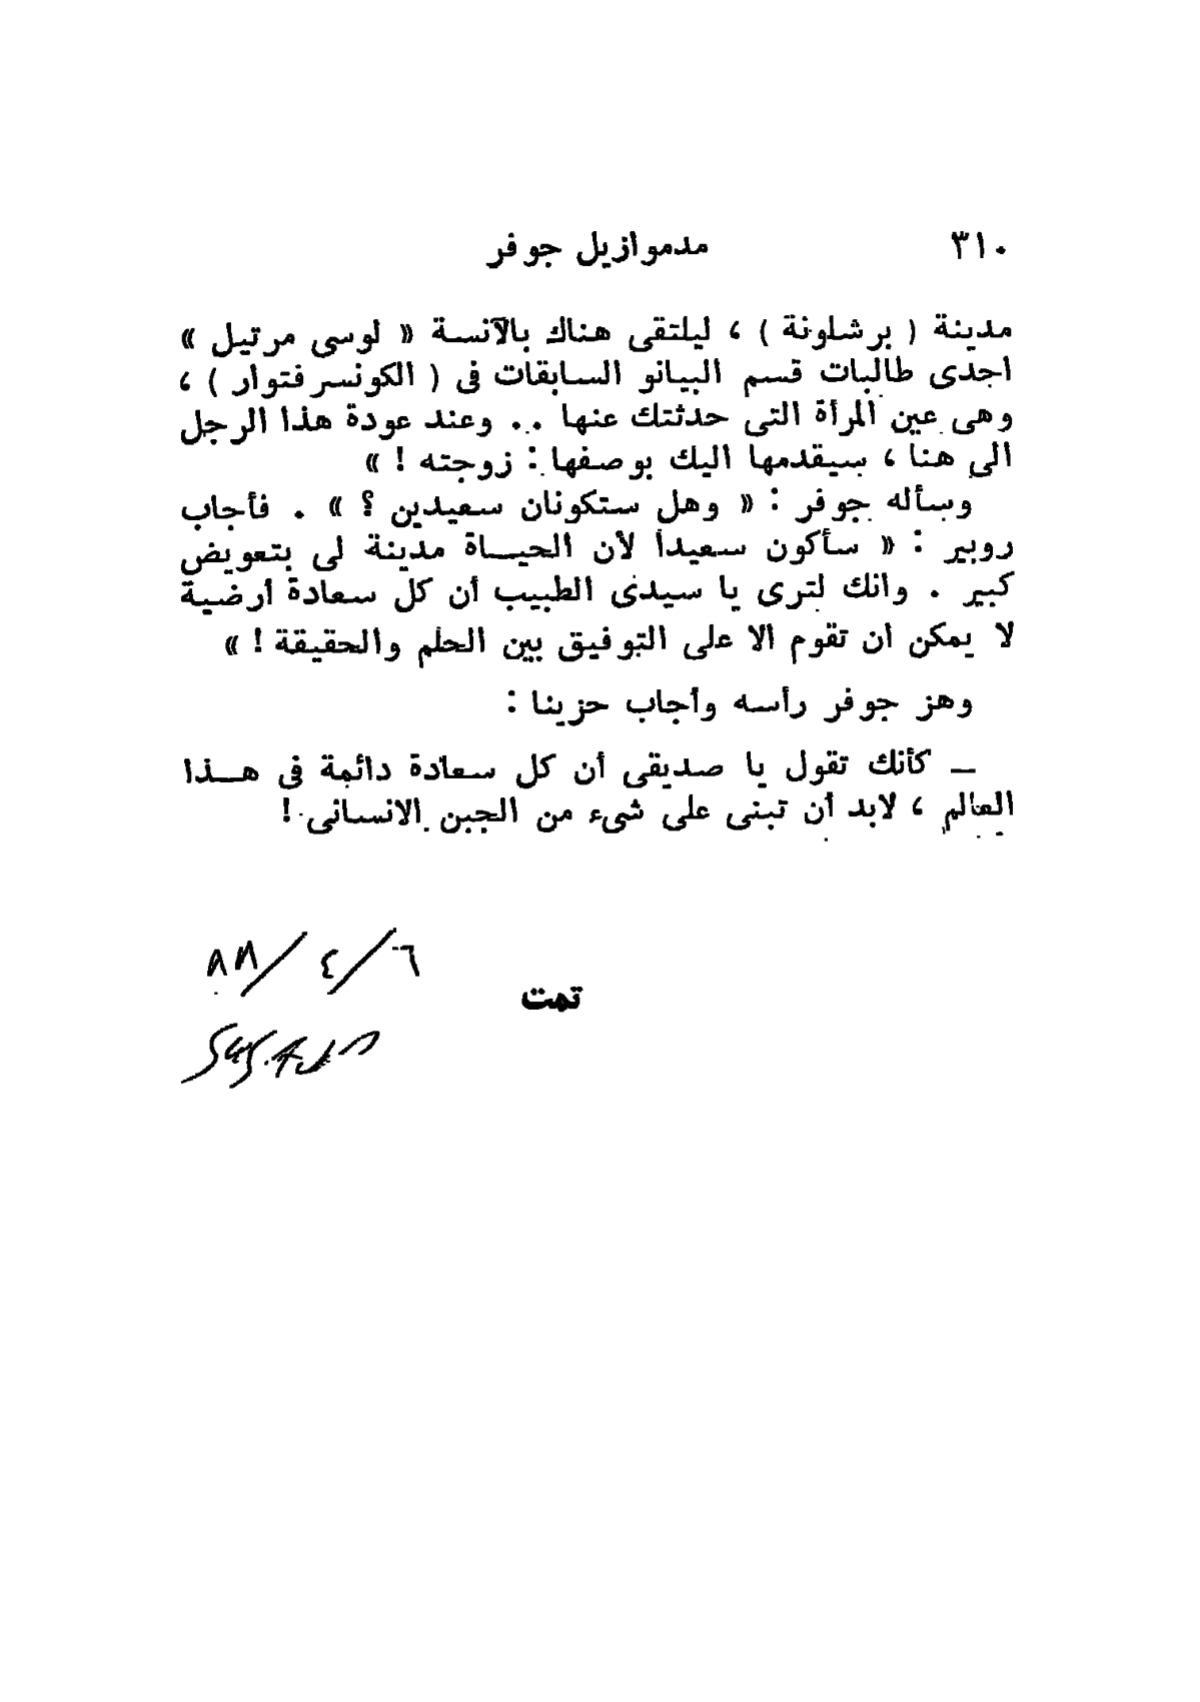 ٣١٠ مدموازيل جوفر
مدينة ( برشلونة ) ، ليلتقى هناك بالآنسة « لوسى مرتيل »
احدى طالبات قسم البيانو السابقات فى ( الكونسرفتوار ) ،
وهى عين المرأة التى حدثتك عنها .. وعند عودة هذا الرجل
الى هنا ، سيقدمها اليك بوصفها : زوجته ! »
وسأله جوفر : « وهل ستكونان سعيدين ؟ » . فأجاب
روبير : « سأكون سعيدا لأن الحيــاة مدينة لى بتعويض
كبير . وانك لترى يا سيدى الطبيب أن كل سعادة أرضية
لا يمكن ان تقوم الا على التوفيق بين الحلم والحقيقة ! »
وهز جوفر رأسه وأجاب حزينا :
ــ كأنك تقول يا صديقى أن كل سعادة دائمة فى هــذا
العالم ، لابد أن تبنى على شىء من الجبن الانسانى !
٦/٤/٨٨
تمت